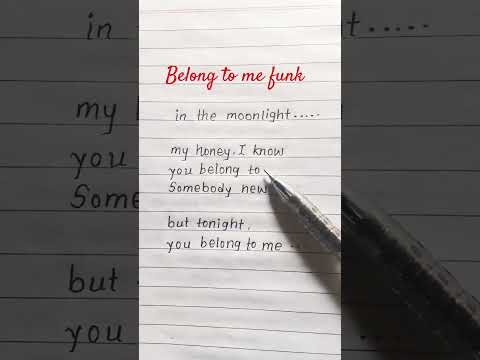 Belong to me funk
in the moonlight.....
my honey. I know
you belong to
Somebody new
but tonight,
you belong to me ..